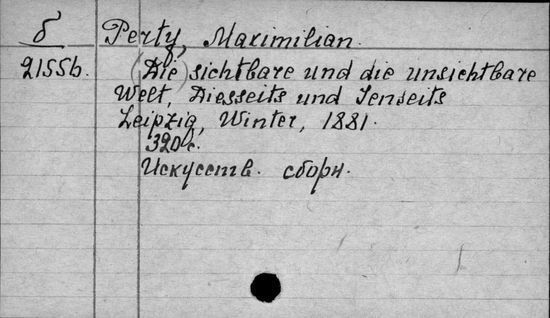 б
2155b.
Perty, Maximilian.
8°
(Die) sichtbare und die unsichtbare
Welt, Diesseits und Jenseits
Leipzig, Winter, 1881.
320 с.
Искусств. сборн.